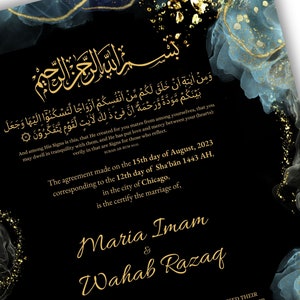 بسم الله الرحمن الرحيم
وَمِنْ آيَاتِهِ أَنْ خَلَقَ لَكُمْ مِنْ أَنْفُسِكُمْ أَزْوَاجًا لِتَسْكُنُوا إِلَيْهَا وَجَعَلَ
بَيْنَكُمْ مَوَدَّةً وَرَحْمَةً إِنَّ فِي ذَٰلِكَ لَآيَاتٍ لِقَوْمٍ يَتَفَكَّرُونَ
And among His Signs is this, that He created for you mates from among yourselves, that you
may dwell in tranquility with them, and He has put love and mercy between your (hearts):
verily in that are Signs for those who reflect.
The agreement made on the 15th day of August, 2023
corresponding to the 12th day of Sha'bān 1443 AH,
in the city of Chicago,
is the certify the marriage of,
Maria Imam
&
Wahab Razaq
THEIR